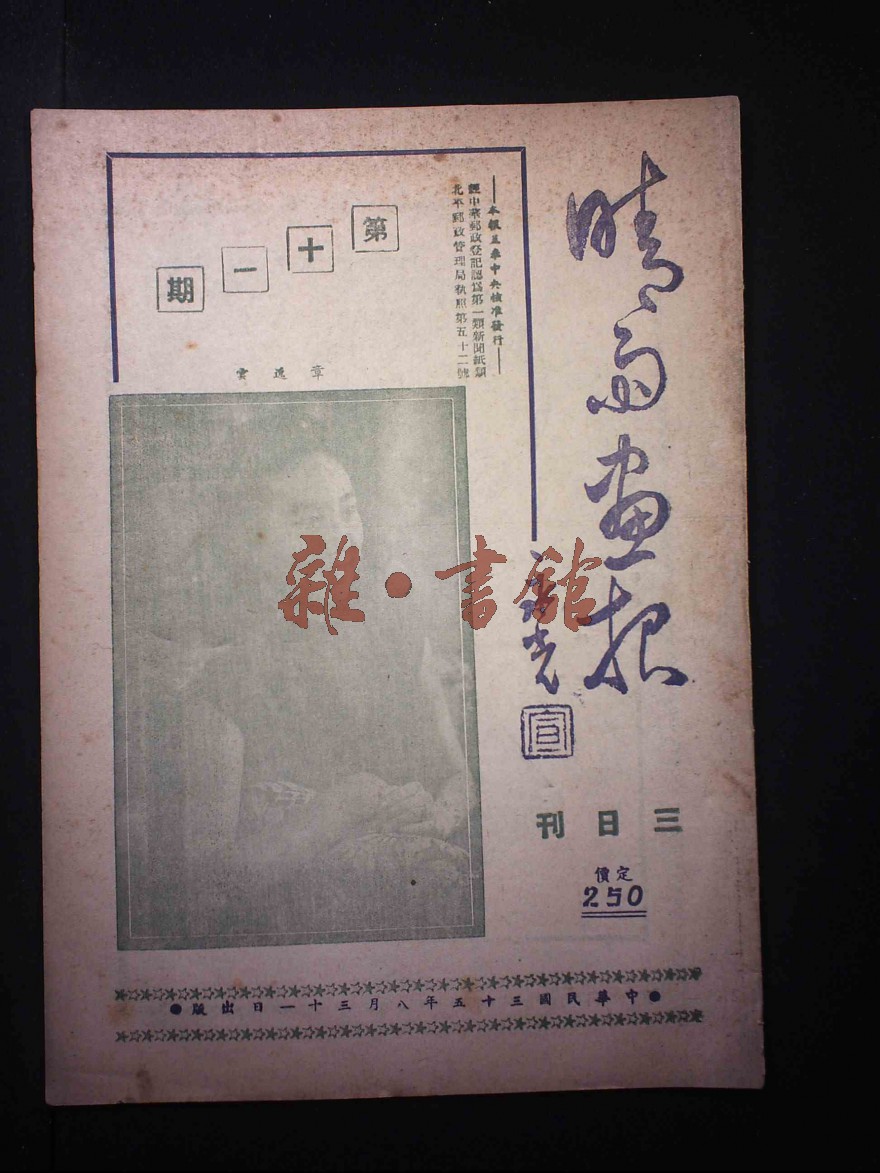 晴雨画报
宣
三日刊
定價
250
——本報呈奉中央核准發行——
經中華郵政登記認爲第一類新聞紙類
北平郵政管理局執照第五十二號
第十一期
章逸雲
雜·書館
●中華民國三十五年八月三十一日出版●